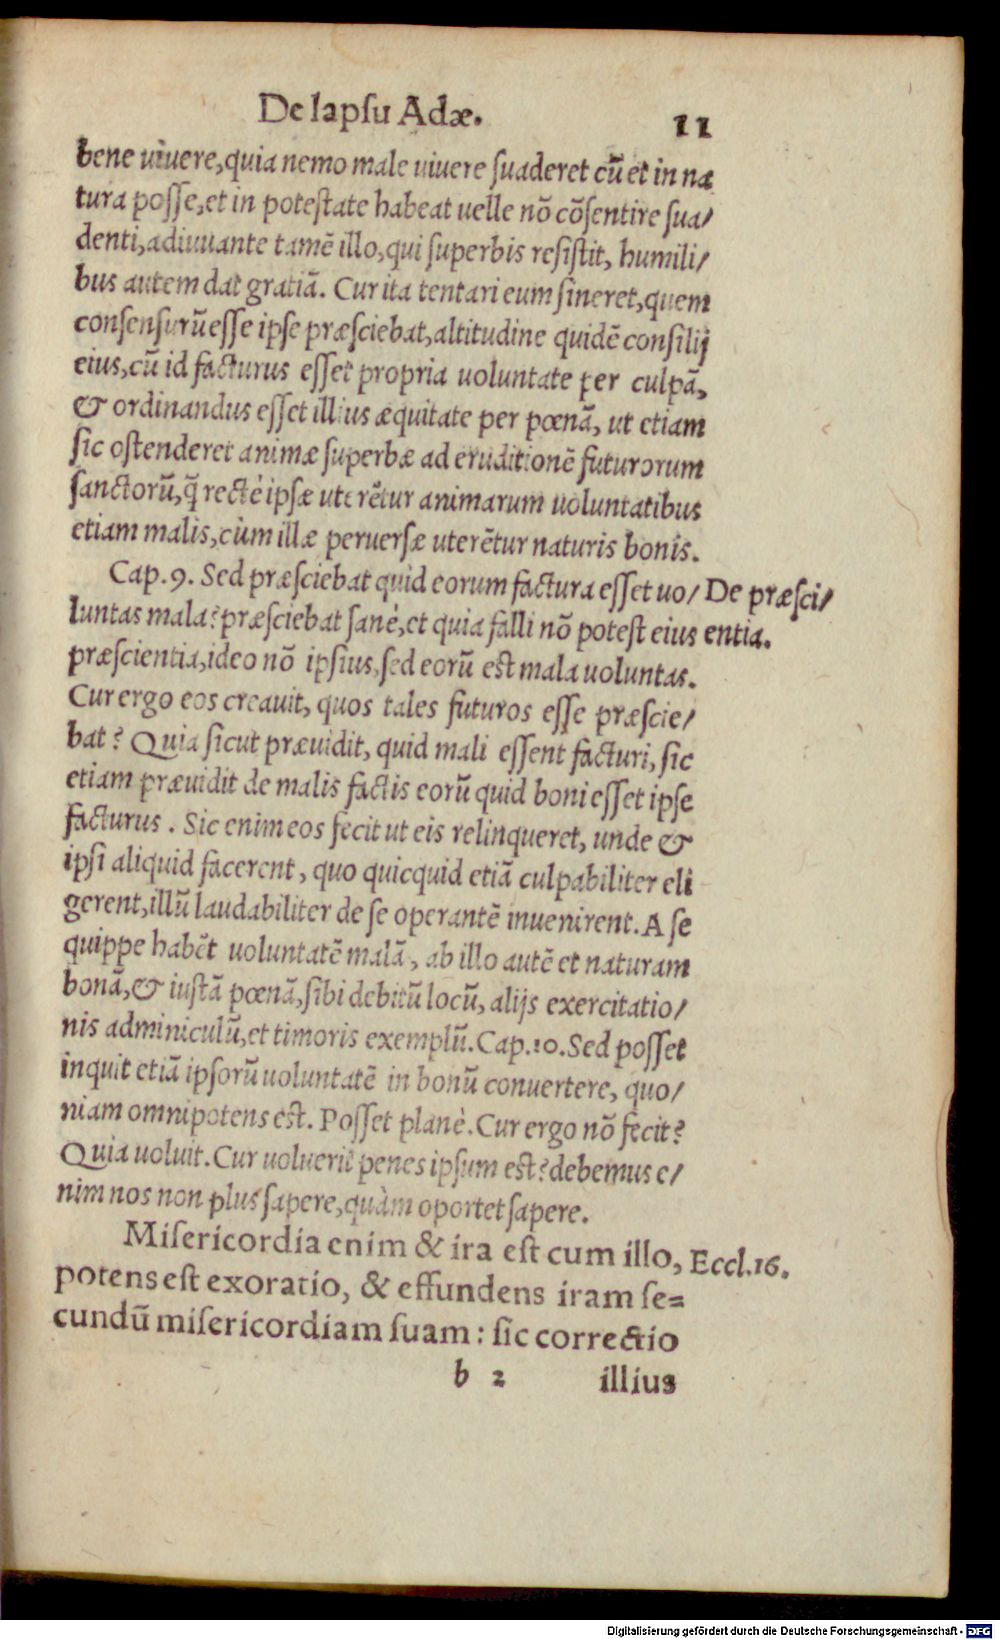 De lapſu Adæ.
11
bene uiuere, quia nemo male uiuere ſuaderet cũ et in na
tura poſſe, et in poteſtate habeat uelle nõ cõſentire ſua/
denti, adiuuante tamẽ illo, qui ſuperbis reſiſtit, humili/
bus autem dat gratiã. Cur ita tentari eum ſineret, quem
conſenſurũ eſſe ipſe præſciebat, altitudine quidẽ conſilij
eius, cũ id facturus eſſet propria uoluntate per culpã,
& ordinandus eſſet illius æquitate per pœnã, ut etiam
ſic oſtenderet animæ ſuperbæ ad eruditionẽ futurorum
ſanctorũ, q̃ rectè ipſæ uterẽtur animarum uoluntatibus
etiam malis, cùm illæ peruerſæ uterẽtur naturis bonis.
Cap.9. Sed præſciebat quid eorum factura eſſet uo/
De præſci/
luntas mala? præſciebat ſanè, et quia falli nõ poteſt eius
entia.
præſcientia, ideo nõ ipſius, ſed eorũ eſt mala uoluntas.
Cur ergo eos creauit, quos tales futuros eſſe præſcie/
bat? Quia ſicut præuidit, quid mali eſſent facturi, ſic
etiam præuidit de malis factis eorũ quid boni eſſet ipſe
facturus. Sic enim eos fecit ut eis relinqueret, unde &
ipſi aliquid facerent, quo quicquid etiã culpabiliter eli
gerent, illũ laudabiliter de ſe operantẽ inuenirent. A ſe
quippe habẽt uoluntatẽ malã, ab illo autẽ et naturam
bonã, & iuſtã pœnã, ſibi debitũ locũ, alijs exercitatio/
nis adminiculũ, et timoris exemplũ. Cap.10. Sed poſſet
inquit etiã ipſorũ uoluntatẽ in bonũ conuertere, quo/
niam omnipotens eſt. Poſſet planè. Cur ergo nõ fecit?
Quia uoluit. Cur uoluerit penes ipſum eſt? debemus e/
nim nos non plus ſapere, quàm oportet ſapere.
Miſericordia enim & ira eſt cum illo,
Eccl.16.
potens eſt exoratio, & effundens iram ſe=
cundũ miſericordiam ſuam: ſic correctio
b 2
illius
Digitalisierung gefördert durch die Deutsche Forschungsgemeinschaft - DFG